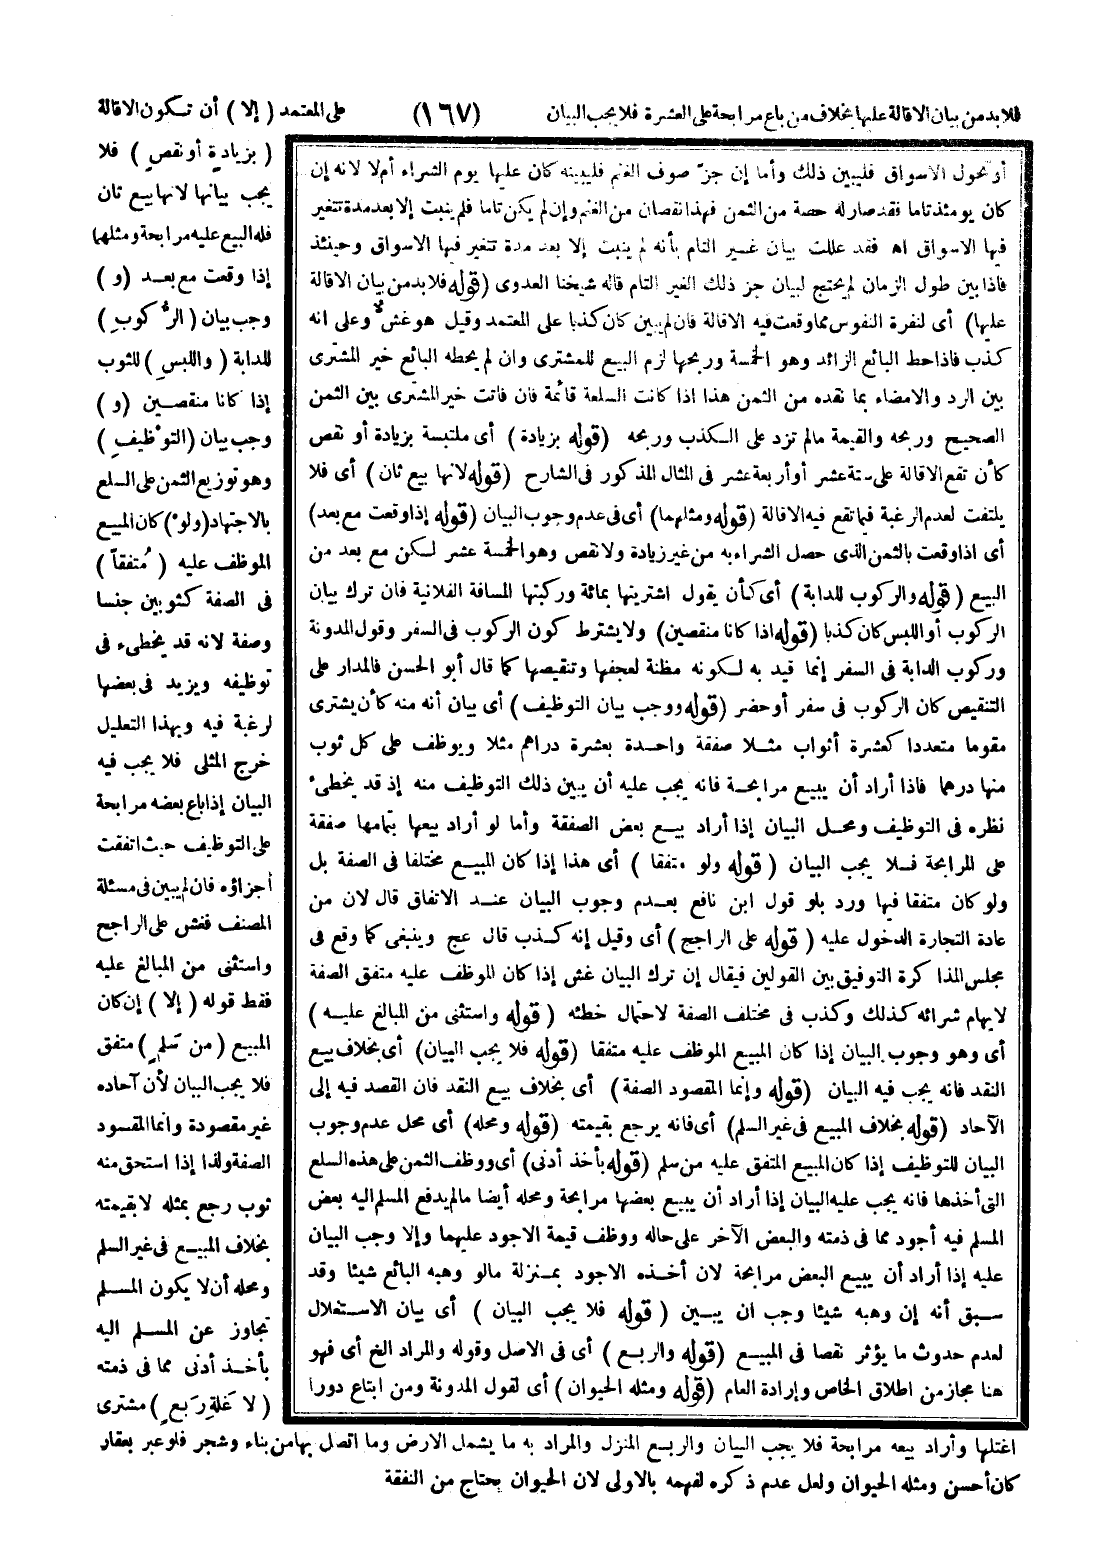 فلا بد من بيان الاقالة عليها بخلاف من باع مرابحة على العشرة فلا يجب البيان
(١٦٧)
على المعتمد (إلا) أن تكون الاقالة
(بزيادة أو نقص) فلا
يجب بيانها لانها بيع ثان
فله البيع عليه مرابحة ومثلهما
إذا وقعت مع بعد (و)
وجب بيان (الركوب)
للدابة (واللبس) للثوب
إذا كانا منقصين (و)
وجب بيان (التوظيف)
وهو توزيع الثمن على السلع
بالاجتهاد (ولو) كان المبيع
الموظف عليه (متفقا)
فى الصفة كثوبين جنسا
وصفة لانه قد يخطىء فى
توظيفه ويزيد فى بعضها
لرغبة فيه وبهذا التعليل
خرج المثلى فلا يجب فيه
البيان إذا باع بعضه مرابحة
على التوظيف حيث اتفقت
أجزاؤه فان لم يبين فى مسئلة
المصنف فغش على الراجح
واستثنى من المبالغ عليه
فقط قوله (إلا) إن كان
المبيع (من سَلمٍ) متفق
فلا يجب البيان لأن آحاده
غير مقصودة وانما المقسود
الصفة ولذا إذا استحق منه
ثوب رجع بمثله لا بقيمته
بخلاف المبيع فى غير السلم
ومحله أن لا يكون المسلم
تجاوز عن المسلم اليه
بأخذ أدنى مما فى ذمته
(لا غَلةِ رَبعٍ) مشترى
أو تحول الاسواق فليبين ذلك وأما إن جزّ صوف الغنم فليبينه كان عليها يوم الشراء أم لا لانه إن
كان يومئذ تاما فقد صار له حصة من الثمن فهذا نقصان من الغنم وإن لم يكن تاما فلم ينبت إلا بعد مدة تتغير
فيها الاسواق اه فقد عللت بيان غير التام بأنه لم ينبت إلا بعد مدة تتغير فيها الاسواق وحينئذ
فاذا بين طول الزمان لم يحتج لبيان جز ذلك الغير التام قاله شيخنا العدوى (قوله فلا بد من بيان الاقالة
عليها) أى لنفرة النفوس مما وقعت فيه الاقالة فان لم يبين كان كذبا على المعتمد وقيل هو غش وعلى انه
كذب فاذا حط البائع الزائد وهو الخمسة وربحها لزم البيع للمشترى وان لم يحطه البائع خير المشترى
بين الرد والامضاء بما نقده من الثمن هذا اذا كانت السلعة قائمة فان فاتت خير المشترى بين الثمن
الصحيح وربحه والقيمة مالم تزد على الكذب وربحه (قوله بزيادة) أى ملتبسة بزيادة أو نقص
كأن تقع الاقالة على ستة عشر أو أربعة عشر فى المثال المذكور فى الشارح (قوله لانها بيع ثان) أى فلا
يلتفت لعدم الرغبة فيما تقع فيه الاقالة (قوله ومثلهما) أى فى عدم وجوب البيان (قوله إذا وقعت مع بعد)
أى اذا وقعت بالثمن الذى حصل الشراء به من غير زيادة ولا نقص وهو الخمسة عشر لكن مع بعد من
البيع (قوله والركوب للدابة) أى كأن يقول اشتريتها بمائة وركبتها المسافة الفلانية فان ترك بيان
الركوب أو اللبس كان كذبا (قوله اذا كانا منقصين) ولا يشترط كون الركوب فى السفر وقول المدونة
وركوب الدابة فى السفر إنما قيد به لكونه مظنة لعجفها وتنقيصها كما قال أبو الحسن فالمدار على
التنقيص كان الركوب فى سفر أو حضر (قوله ووجب بيان التوظيف) أى بيان أنه منه كأن يشترى
مقوما متعددا كعشرة أثواب مثلا صفقة واحدة بعشرة دراهم مثلا ويوظف على كل ثوب
منها درهما فاذا أراد أن يبيع مرابحة فانه يجب عليه أن يبين ذلك التوظيف منه إذ قد يخطىء
نظره فى التوظيف ومحل البيان إذا أراد بيع بعض الصفقة وأما لو أراد بيعها بتمامها صفقة
على المرابحة فلا يجب البيان (قوله ولو متفقا) أى هذا إذا كان المبيع مختلفا فى الصفة بل
ولو كان متفقا فيها ورد بلو قول ابن نافع بعدم وجوب البيان عند الاتفاق قال لان من
عادة التجارة الدخول عليه (قوله على الراجح) أى وقيل إنه كذب قال عج وينبغى كما وقع فى
مجلس المذاكرة التوفيق بين القولين فيقال إن ترك البيان غش إذا كان الموظف عليه متفق الصفة
لايهام شرائه كذلك وكذب فى مختلف الصفة لاحتمال خطئه (قوله واستثنى من المبالغ عليه)
أى وهو وجوب البيان إذا كان المبيع الموظف عليه متفقا (قوله فلا يجب البيان) أى بخلاف بيع
النقد فانه يجب فيه البيان (قوله وإنما المقصود الصفة) أى بخلاف بيع النقد فان القصد فيه إلى
الآحاد (قوله بخلاف المبيع فى غير السلم) أى فانه يرجع بقيمته (قوله ومحله) أى محل عدم وجوب
البيان للتوظيف إذا كان المبيع المتفق عليه من سلم (قوله بأخذ أدنى) أى ووظف الثمن على هذه السلع
التى أخذها فانه يجب عليه البيان إذا أراد أن يبيع بعضها مرابحة ومحله أيضا مالم يدفع المسلم اليه بعض
المسلم فيه أجود مما فى ذمته والبعض الآخر على حاله ووظف قيمة الاجود عليهما وإلا وجب البيان
عليه إذا أراد أن يبيع البعض مرابحة لان أخذه الاجود بمنزلة مالو وهبه البائع شيئا وقد
سبق أنه إن وهبه شيئا وجب ان يبين (قوله فلا يجب البيان) أى بيان الاستغلال
لعدم حدوث ما يؤثر نقصا فى المبيع (قوله والربع) أى فى الاصل وقوله والمراد الخ أى فهو
هنا مجاز من اطلاق الخاص وإرادة العام (قوله ومثله الحيوان) أى لقول المدونة ومن ابتاع دورا
اغتلها وأراد بيعه مرابحة فلا يجب البيان والربع المنزل والمراد به ما يشمل الارض وما اتصل بها من بناء وشجر فلو عبر بعقار
كان أحسن ومثله الحيوان ولعل عدم ذكره لفهمه بالاولى لان الحيوان يحتاج من النفقة